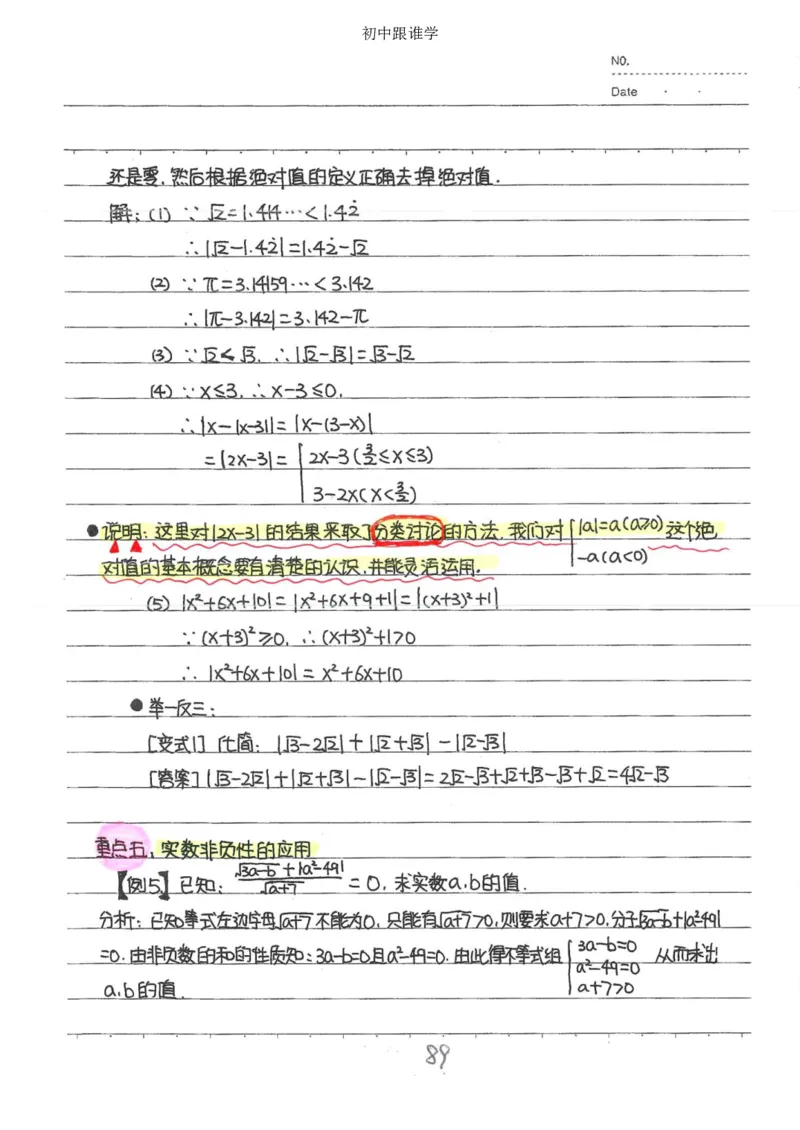 初中跟谁学
NO.
Date · ·
还是零,然后根据绝对值的定义正确去掉绝对值.
解:(1) ∵ √2=1.414…<1.42̇
∴|√2-1.42̇|=1.42̇-√2
(2) ∵ π=3.14159…<3.142
∴|π-3.142|=3.142-π
(3) ∵√2<√3, ∴|√2-√3|=√3-√2
(4) ∵x≤3, ∴x-3≤0,
∴|x-|x-3||=|x-(3-x)|
=|2x-3|= { 2x-3 (3/2≤x≤3)
3-2x(x<3/2)
●说明:这里对|2x-3|的结果采取了分类讨论的方法,我们对{|a|=a(a≥0)这个绝
-a(a<0)
对值的基本概念要有清楚的认识,并能灵活运用.
(5) |x²+6x+10|=|x²+6x+9+1|=|(x+3)²+1|
∵(x+3)²≥0, ∴(x+3)²+1>0
∴ |x²+6x+10|= x²+6x+10
●举一反三:
[变式1] 化简: |√3-2√2|+|√2+√3|-|√2-√3|
[答案]|√3-2√2|+|√2+√3|-|√2-√3|=2√2-√3+√2+√3-√3+√2=4√2-√3
重点五,实数非负性的应用
【例5】已知: (√(3a-b)+|a²-49|)/√(a+7) =0,求实数a,b的值.
分析:已知等式左边字母√(a+7)不能为0,只能有√(a+7)>0,则要求a+7>0,分子√(3a-b)+|a²-49|
=0.由非负数的和的性质知:3a-b=0且a²-49=0.由此得不等式组{3a-b=0 从而求出
a²-49=0
a+7>0
a,b的值.
89